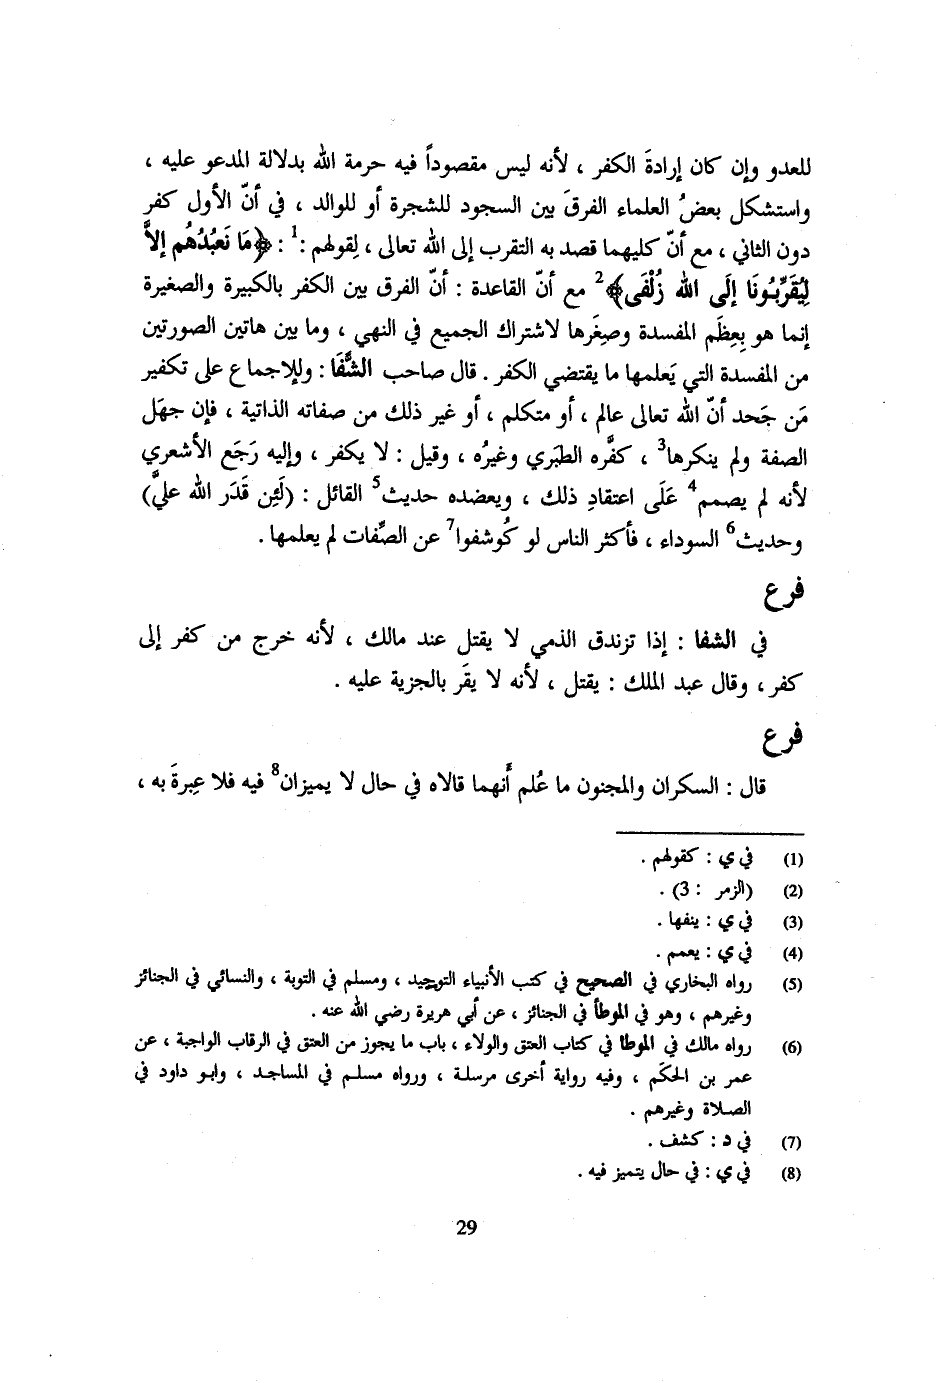 للعدو وإن كان إرادةَ الكفر ، لأنه ليس مقصوداً فيه حرمة الله بدلالة المدعو عليه ،
واستشكل بعضُ العلماء الفرقَ بين السجود للشجرة أو للوالد ، في أنّ الأول كفر
دون الثاني ، مع أنّ كليهما قصد به التقرب إلى الله تعالى ، لِقولهم :1 : ﴿مَا نَعبُدُهُم إلاَّ
لِيُقَرِّبُونَا إلَى الله زُلْفَى﴾2 مع أنّ القاعدة : أنّ الفرق بين الكفر بالكبيرة والصغيرة
إنما هو بِعِظَم المفسدة وصِغَرها لاشتراك الجميع في النهي ، وما بين هاتين الصورتين
من المفسدة التي يَعلمها ما يقتضي الكفر . قال صاحب الشِّفَا : وللإجماع على تكفير
مَن جَحد أنّ الله تعالى عالم ، أو متكلم ، أو غير ذلك من صفاته الذاتية ، فإن جهَل
الصفة ولم ينكرها3 ، كفَّره الطبَري وغيرُه ، وقيل : لا يكفر ، وإليه رَجَع الأشعري
لأنه لم يصمم4 عَلَى اعتقادِ ذلك ، ويعضده حديث5 القائل : (لَئِن قَدَر الله عليَّ)
وحديث6 السوداء ، فأكثر الناس لو كُوشفوا7 عن الصِّفات لم يعلمها .
فرع
في الشفا : إذا تزندق الذمي لا يقتل عند مالك ، لأنه خرج من كفر إلى
كفر ، وقال عبد الملك : يقتل ، لأنه لا يقَر بالجزية عليه .
فرع
قال : السكران والمجنون ما عُلم أَنهما قالاه في حال لا يميزان8 فيه فلا عِبرةَ به ،
(1) في ي : كقولهم .
(2) (الزمر : 3) .
(3) في ي : ينفها .
(4) في ي : يعمم .
(5) رواه البخاري في الصحيح في كتب الأنبياء التوحيد ، ومسلم في التوبة ، والنسائي في الجنائز
وغيرهم ، وهو في الموطأ في الجنائز ، عن أبي هريرة رضي الله عنه .
(6) رواه مالك في الموطا في كتاب العتق والولاء ، باب ما يجوز من العتق في الرقاب الواجبة ، عن
عمر بن الحكَم ، وفيه رواية أخرى مرسلة ، ورواه مسلم في المساجد ، وابو داود في
الصلاة وغيرهم .
(7) في د : كشف .
(8) في ي : في حال يتميز فيه .
29